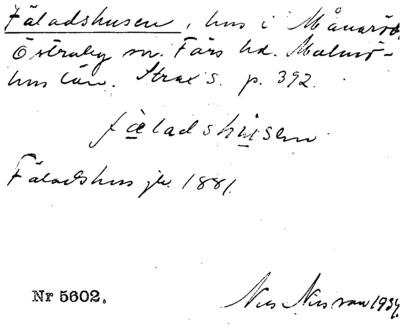 Fäladshusen, hus i Månaröd,
Östraby sn. Färs hd. Malmö-
hus län. Strax S. p. 392.
fä̀ladshu̱sen
Fäladshus jb. 1881.
Nr 5602. Nils Nilsson 1934.